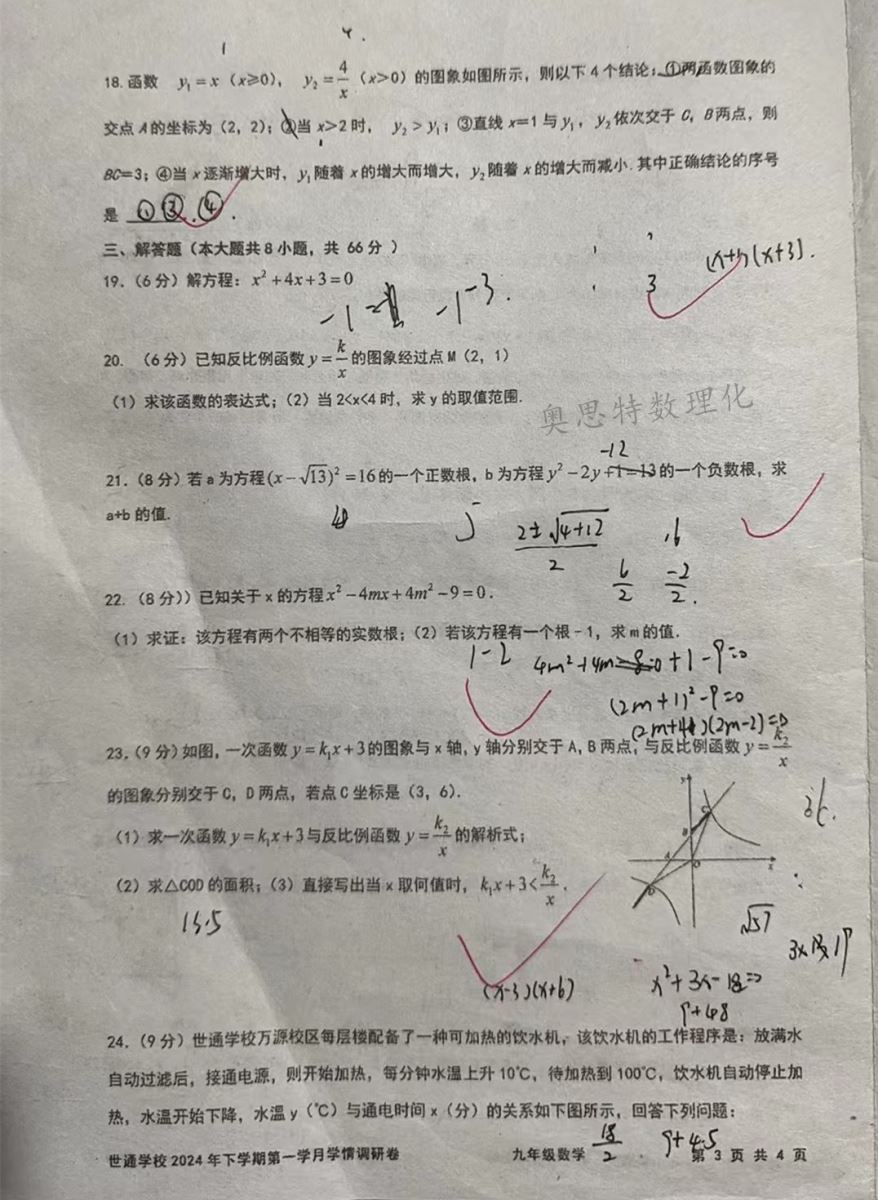 1 4.
18. 函数 y₁=x（x≥0）, y₂=4/x（x>0）的图象如图所示，则以下4个结论：①两函数图象的
交点A的坐标为（2, 2）；②当x>2时， y₂>y₁；③直线x=1与y₁，y₂依次交于C，B两点，则
BC=3；④当x逐渐增大时，y₁随着x的增大而增大，y₂随着x的增大而减小.其中正确结论的序号
是 ①③.④.
三、解答题（本大题共8小题，共 66分 ）
(x+1)(x+3).
19.（6分）解方程：x²+4x+3=0
-1 -3. 3
20. （6分）已知反比例函数y=k/x的图象经过点M（2, 1）
（1）求该函数的表达式；（2）当2<x<4时，求y的取值范围.
奥思特数理化
-12
21.（8分）若a为方程(x-√13)²=16的一个正数根，b为方程y²-2y+1=13的一个负数根，求
a+b的值.
5 (2±√(4+12))/2
6/2 -2/2.
22.（8分））已知关于x的方程x²-4mx+4m²-9=0.
（1）求证：该方程有两个不相等的实数根；（2）若该方程有一个根-1，求m的值.
1-2 4m²+4m+1-9=0
(2m+1)²-9=0
(2m+4)(2m-2)=0
23.（9分）如图，一次函数y=k₁x+3的图象与x轴，y轴分别交于A，B两点，与反比例函数y=k₂/x
的图象分别交于C，D两点，若点C坐标是（3, 6）.
（1）求一次函数y=k₁x+3与反比例函数y=k₂/x的解析式；
（2）求△COD的面积；（3）直接写出当x取何值时，k₁x+3<k₂/x.
y
C
B
A
O
x
D
36.
13.5
√57
(x-3)(x+6) x²+3x-18=0
9+48
24.（9分）世通学校万源校区每层楼配备了一种可加热的饮水机，该饮水机的工作程序是：放满水
自动过滤后，接通电源，则开始加热，每分钟水温上升10℃，待加热到100℃，饮水机自动停止加
热，水温开始下降，水温y（℃）与通电时间x（分）的关系如下图所示，回答下列问题：
18/2 9+4.5
世通学校2024年下学期第一学月学情调研卷 九年级数学 第 3 页 共 4 页